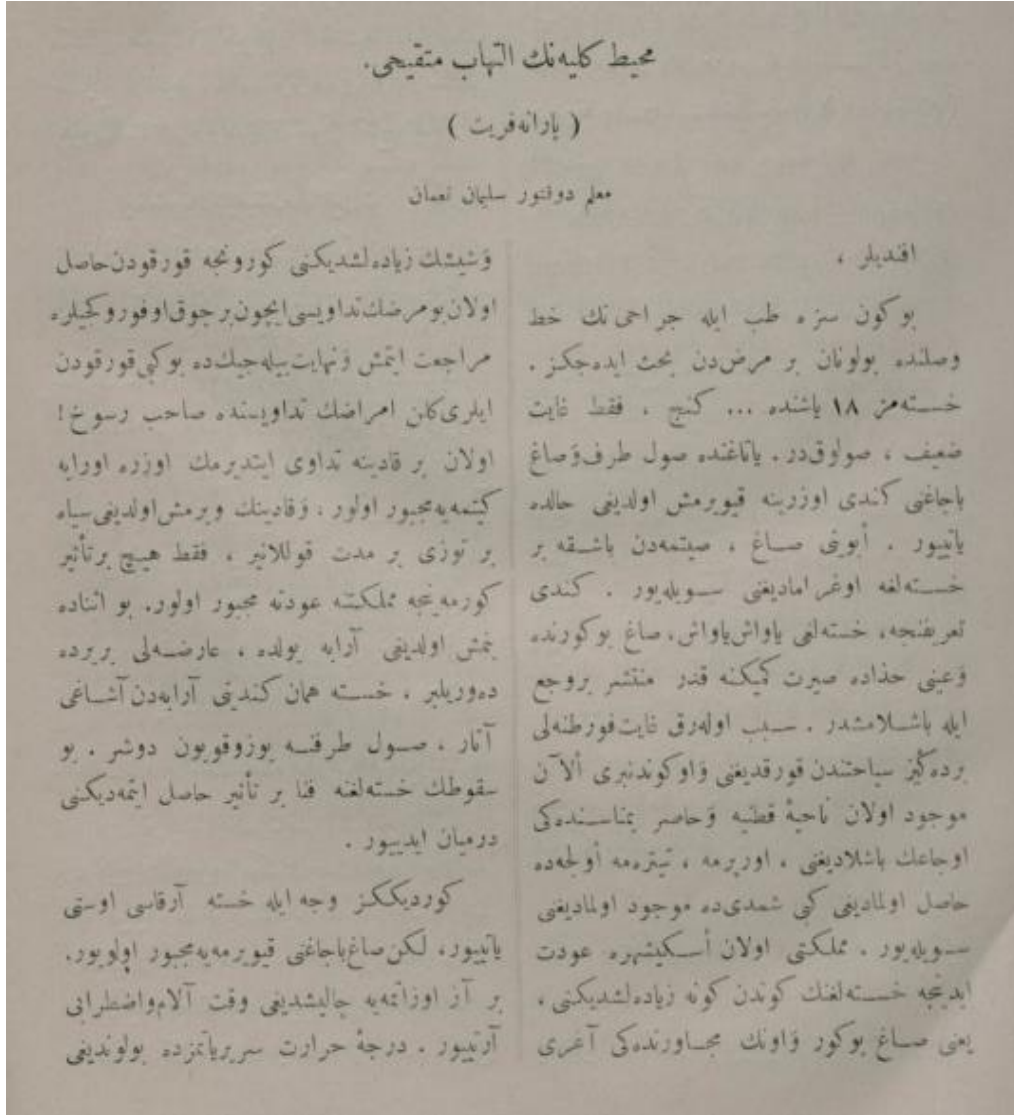 محيط كليه‌نك التهاب متقيحى.
( پارانه‌فريت )
معلم دوقتور سليمان نعمان
افنديلر ،
بوكون سزه طب ايله جراحى‌نك خط
وصلنده بولونان بر مرض‌دن بحث ايده‌جكز .
خسته‌مز ١٨ ياشنده ... كنج ، فقط غايت
ضعيف ، صولوق‌در . ياتاغنده صول طرف وَصاغ
باجاغنى كندى اوزرينه قيويرمش اولديغى حالده
ياتييور . أبوينى صاغ ، صيتمه‌دن باشقه بر
خسته‌لغه اوغراماديغنى سويله‌يور . كندى
تعريفنجه، خسته‌لغى ياواش‌ياواش، صاغ بوكورنده
وَعينى حذاده صيرت كميكنه قدر منتشر بروجع
ايله باشلامشدر . سبب اوله‌رق غايت فورطنه‌لى
برده‌كيز سياحتندن قورقديغنى وَاوكوندنبرى ألآن
موجود اولان ناحيۀ قطنيه وَخاصر يمناسنده‌كى
اوجاعك باشلاديغنى ، اورپرمه ، تيتره‌مه أولجه‌ده
حاصل اولماديغى كبى شمدى‌ده موجود اولماديغنى
سويله‌يور . مملكتى اولان أسكيشهره عودت
ايدنجه خسته‌لغنك كوندن كونه زياده‌لشديكنى ،
يعنى صاغ بوكور وَاونك مجاورنده‌كى آغرى
وَشيشك زياده‌لشديكنى كورونجه قورقودن حاصل
اولان بو مرضك تداويسى ايچون برچوق اوفوروكجيلره
مراجعت ايتمش وَنهايت بيله‌جيك‌ده بوكبى قورقودن
ايلرى كلن امراضك تداويسنده صاحب رسوخ !
اولان بر قادينه تداوى ايتديرمك اوزره اورايه
كيتمه‌يه مجبور اولور ، وَقادينك ويرمش اولديغى سياه
بر توزى بر مدت قوللانير ، فقط هيچ برتأثير
كورمه‌ينجه مملكتنه عودته مجبور اولور. بو اثناده
بنمش اولديغى آرابه يولده ، عارضه‌لى بريرده
ده‌وريلير ، خسته همان كندينى آرابه‌دن آشاغى
آتار ، صول طرفنه يوزوقويون دوشر . بو
سقوطك خسته‌لغنه فنا بر تأثير حاصل ايتمه‌ديكنى
درميان ايدييور .
كورديككز وجه ايله خسته آرقاسى اوستى
ياتييور، لكن صاغ باجاغنى قيويرمه‌يه مجبور اولويور.
بر آز اوزاتمه‌يه چاليشديغى وقت آلام‌واضطرابى
آرتييور . درجۀ حرارت سريرياتمزده بولونديغى